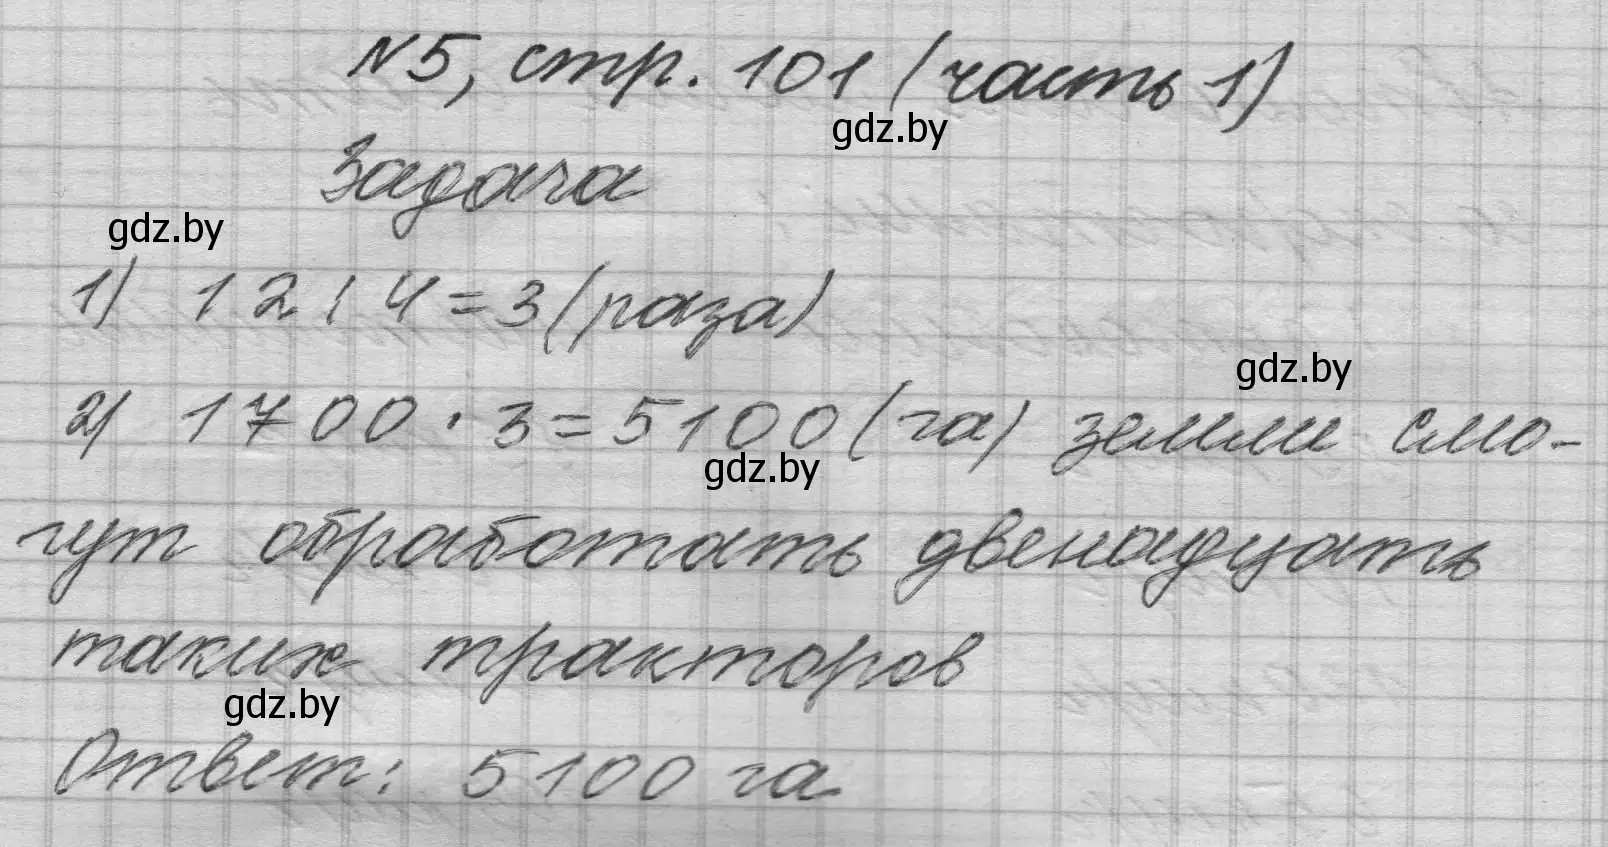 №5, стр. 101 (часть 1)
gdz.by
Задача
gdz.by
1) 12 : 4 = 3 (раза)
gdz.by
2) 1700 · 3 = 5100 (га) земли смо-
gdz.by
гут обработать двенадцать
таких тракторов
gdz.by
Ответ: 5100 га